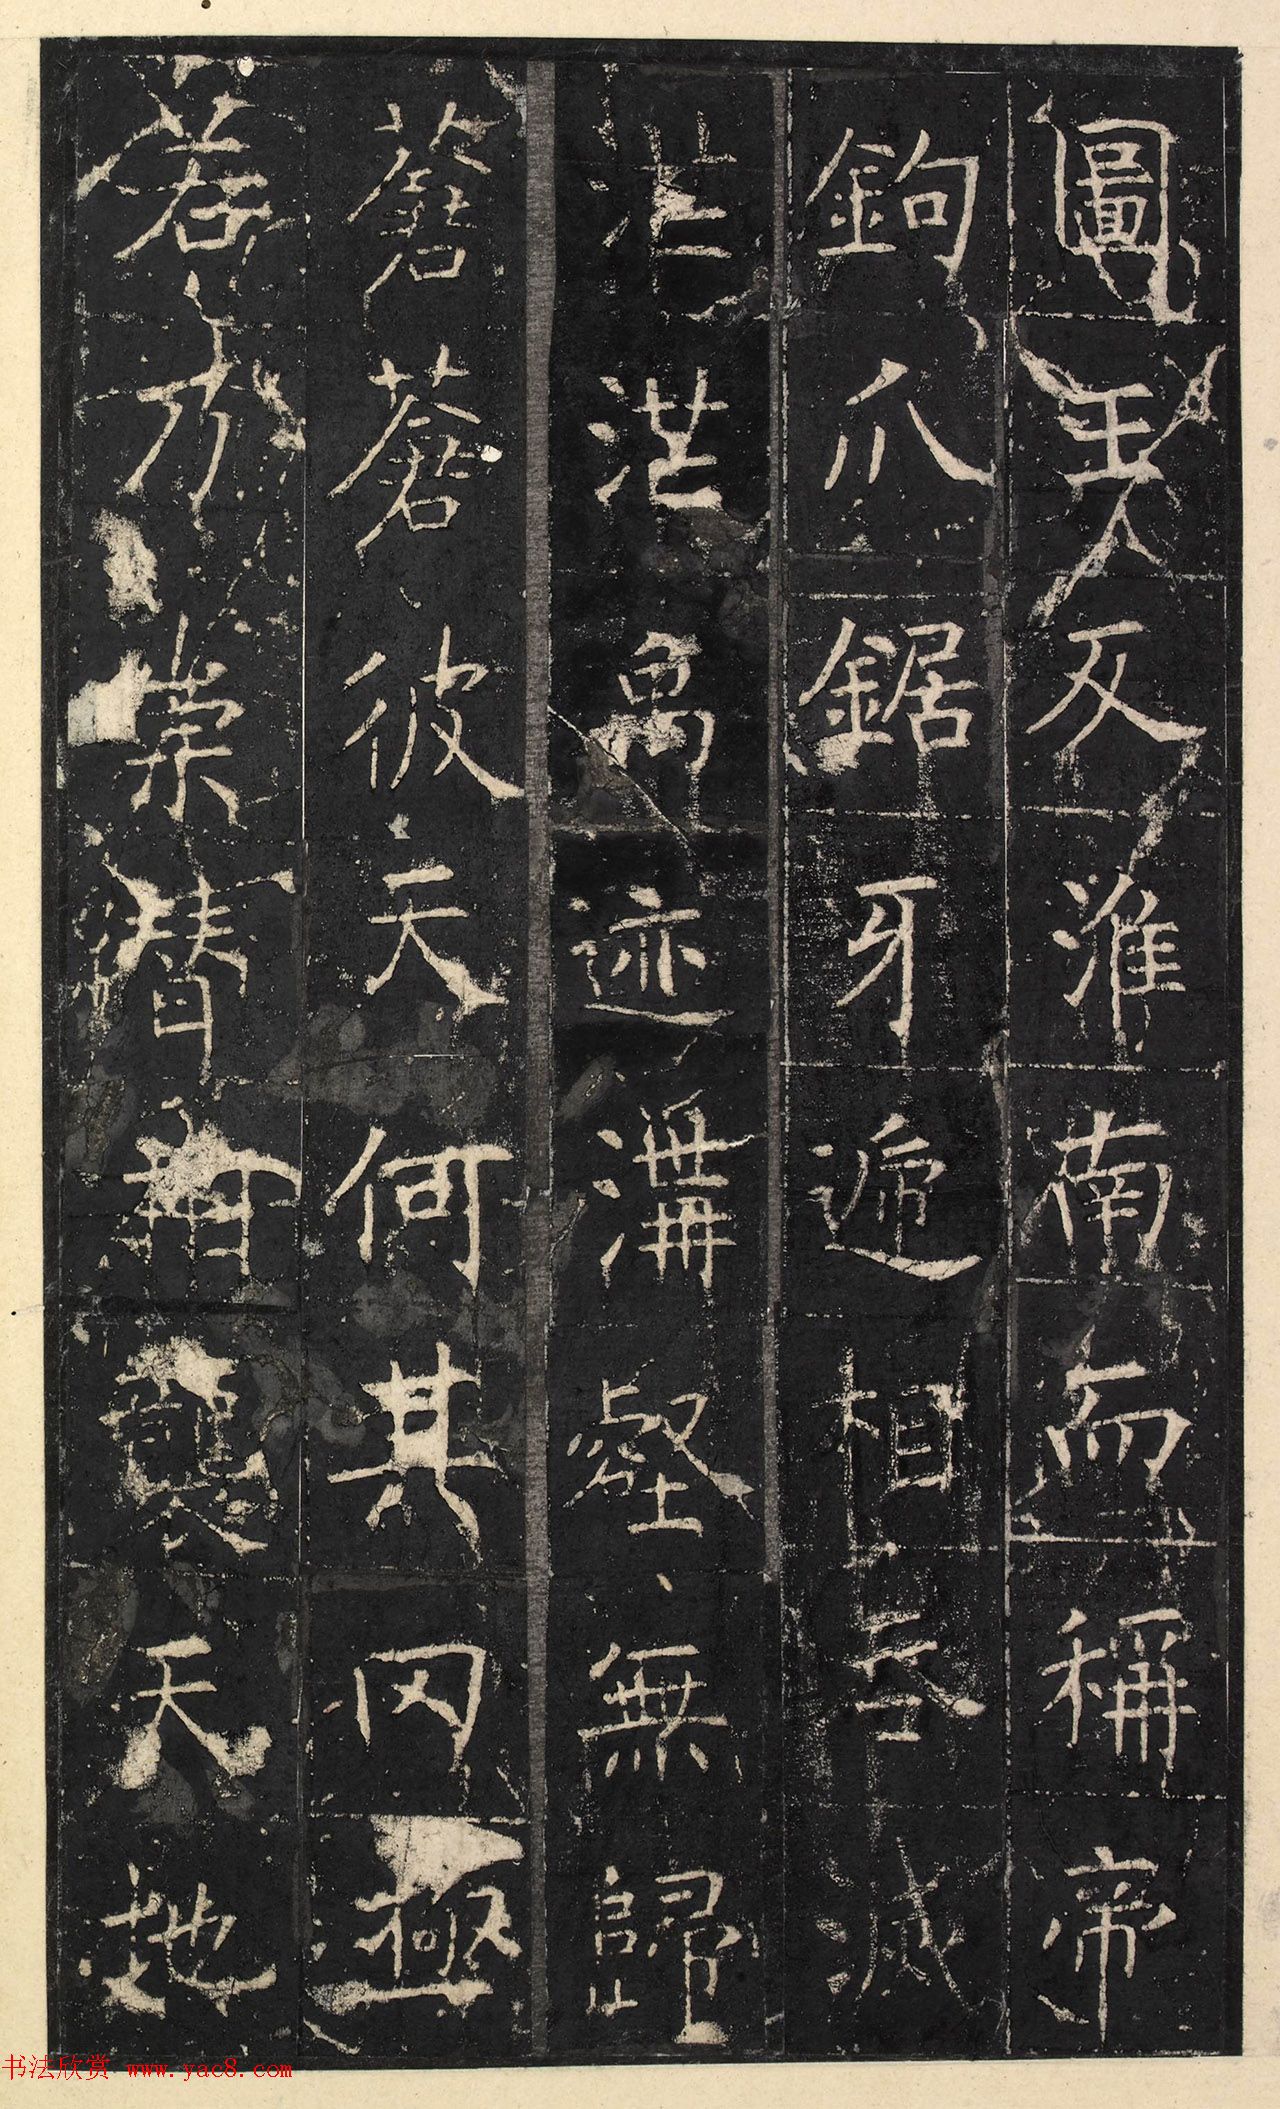 圖王反淮南而稱帝
鉤爪鋸牙遞相吞滅
茫茫禹迹溝壑無歸
蒼蒼彼天何其罔極
若乃崇替相襲天地
书法欣赏 www.yac8.com